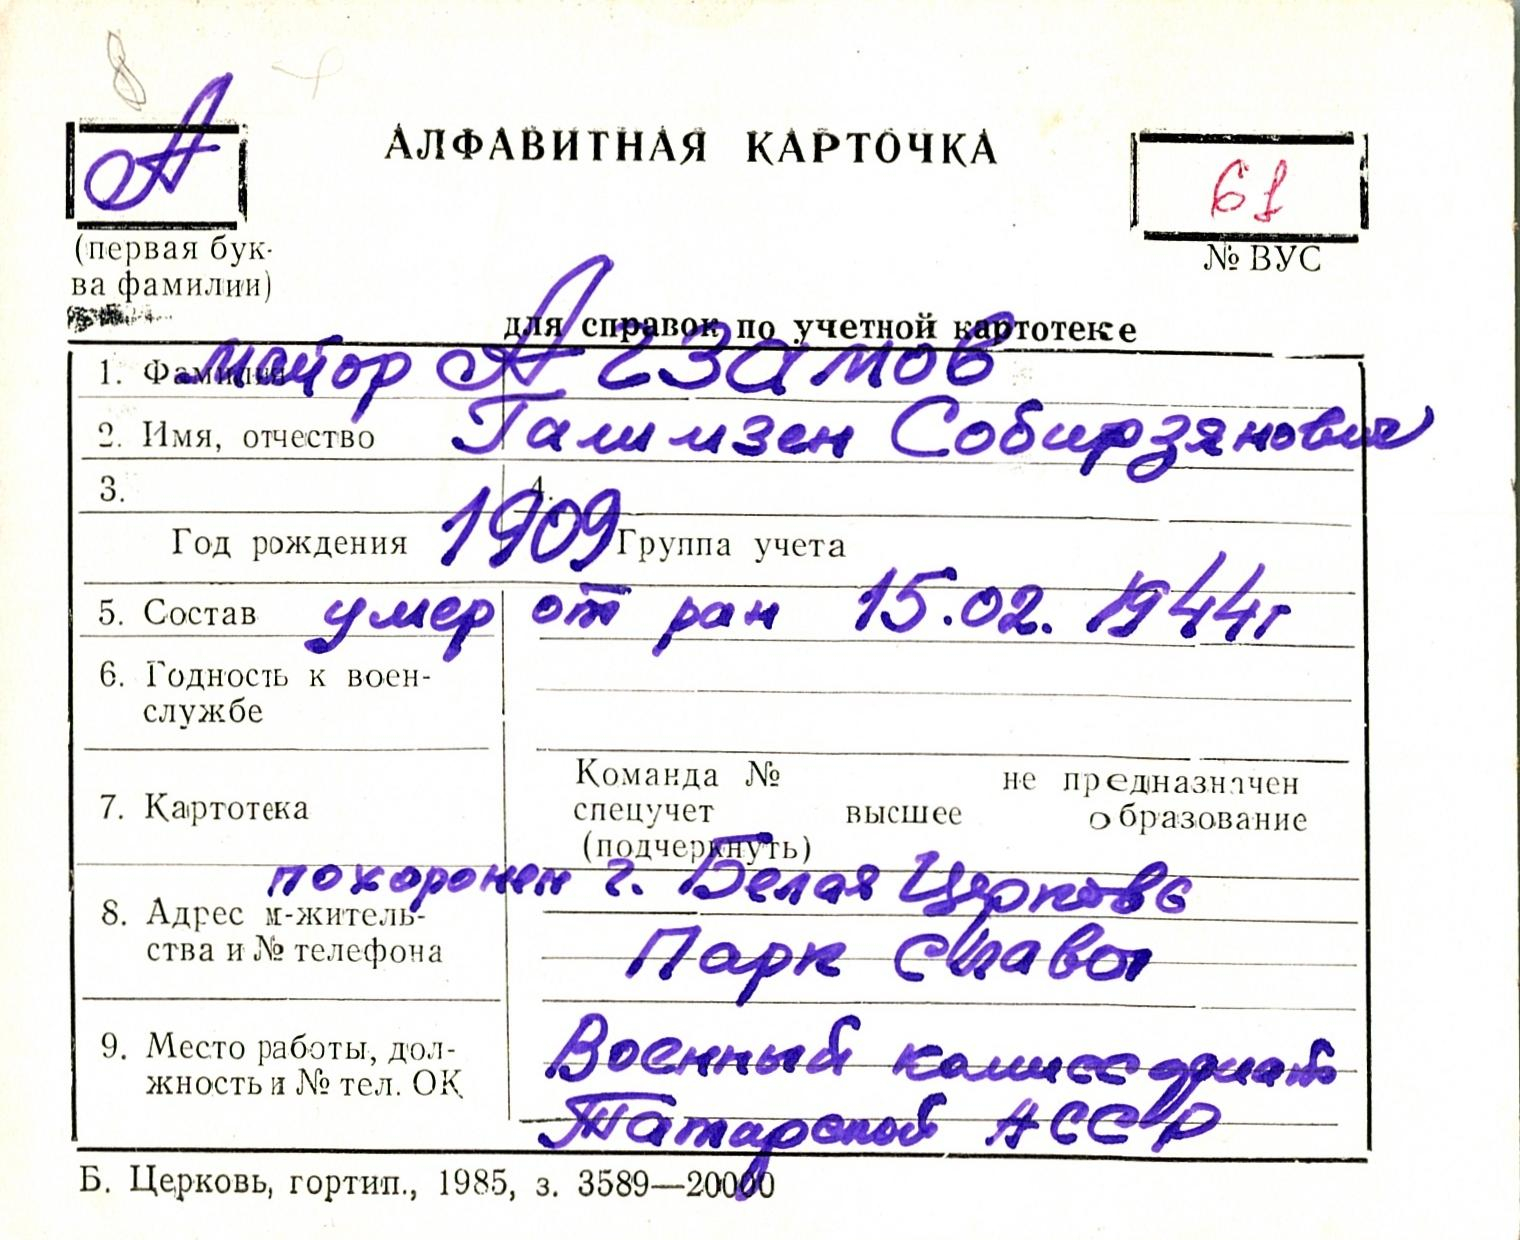 8
А
АЛФАВИТНАЯ КАРТОЧКА
61
(первая бук-
ва фамилии)
№ ВУС
для справок по учетной картотеке
1. Фамилия майор Агзамов
2. Имя, отчество Галимзен Собирзянович
3. 4.
Год рождения 1909 Группа учета
5. Состав умер от ран 15.02.1944г
6. Годность к воен-
службе
Команда № не предназначен
7. Картотека спецучет высшее образование
(подчеркнуть)
похоронен г. Белая Церковь
8. Адрес м-житель-
ства и № телефона Парк славы
9. Место работы, дол- Военный комиссариат
жность и № тел. ОК
Татарской АССР
Б. Церковь, гортип., 1985, з. 3589—20000